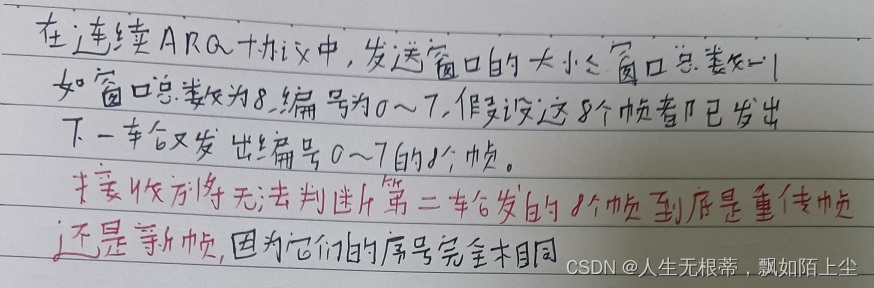 在连续ARQ协议中,发送窗口的大小≤窗口总数-1
如窗口总数为8,编号为0~7,假设这8个帧都已发出
下一轮又发出编号0~7的8个帧。
接收方将无法判断第二轮发的8个帧到底是重传帧
还是新帧,因为它们的序号完全相同
CSDN @人生无根蒂，飘如陌上尘